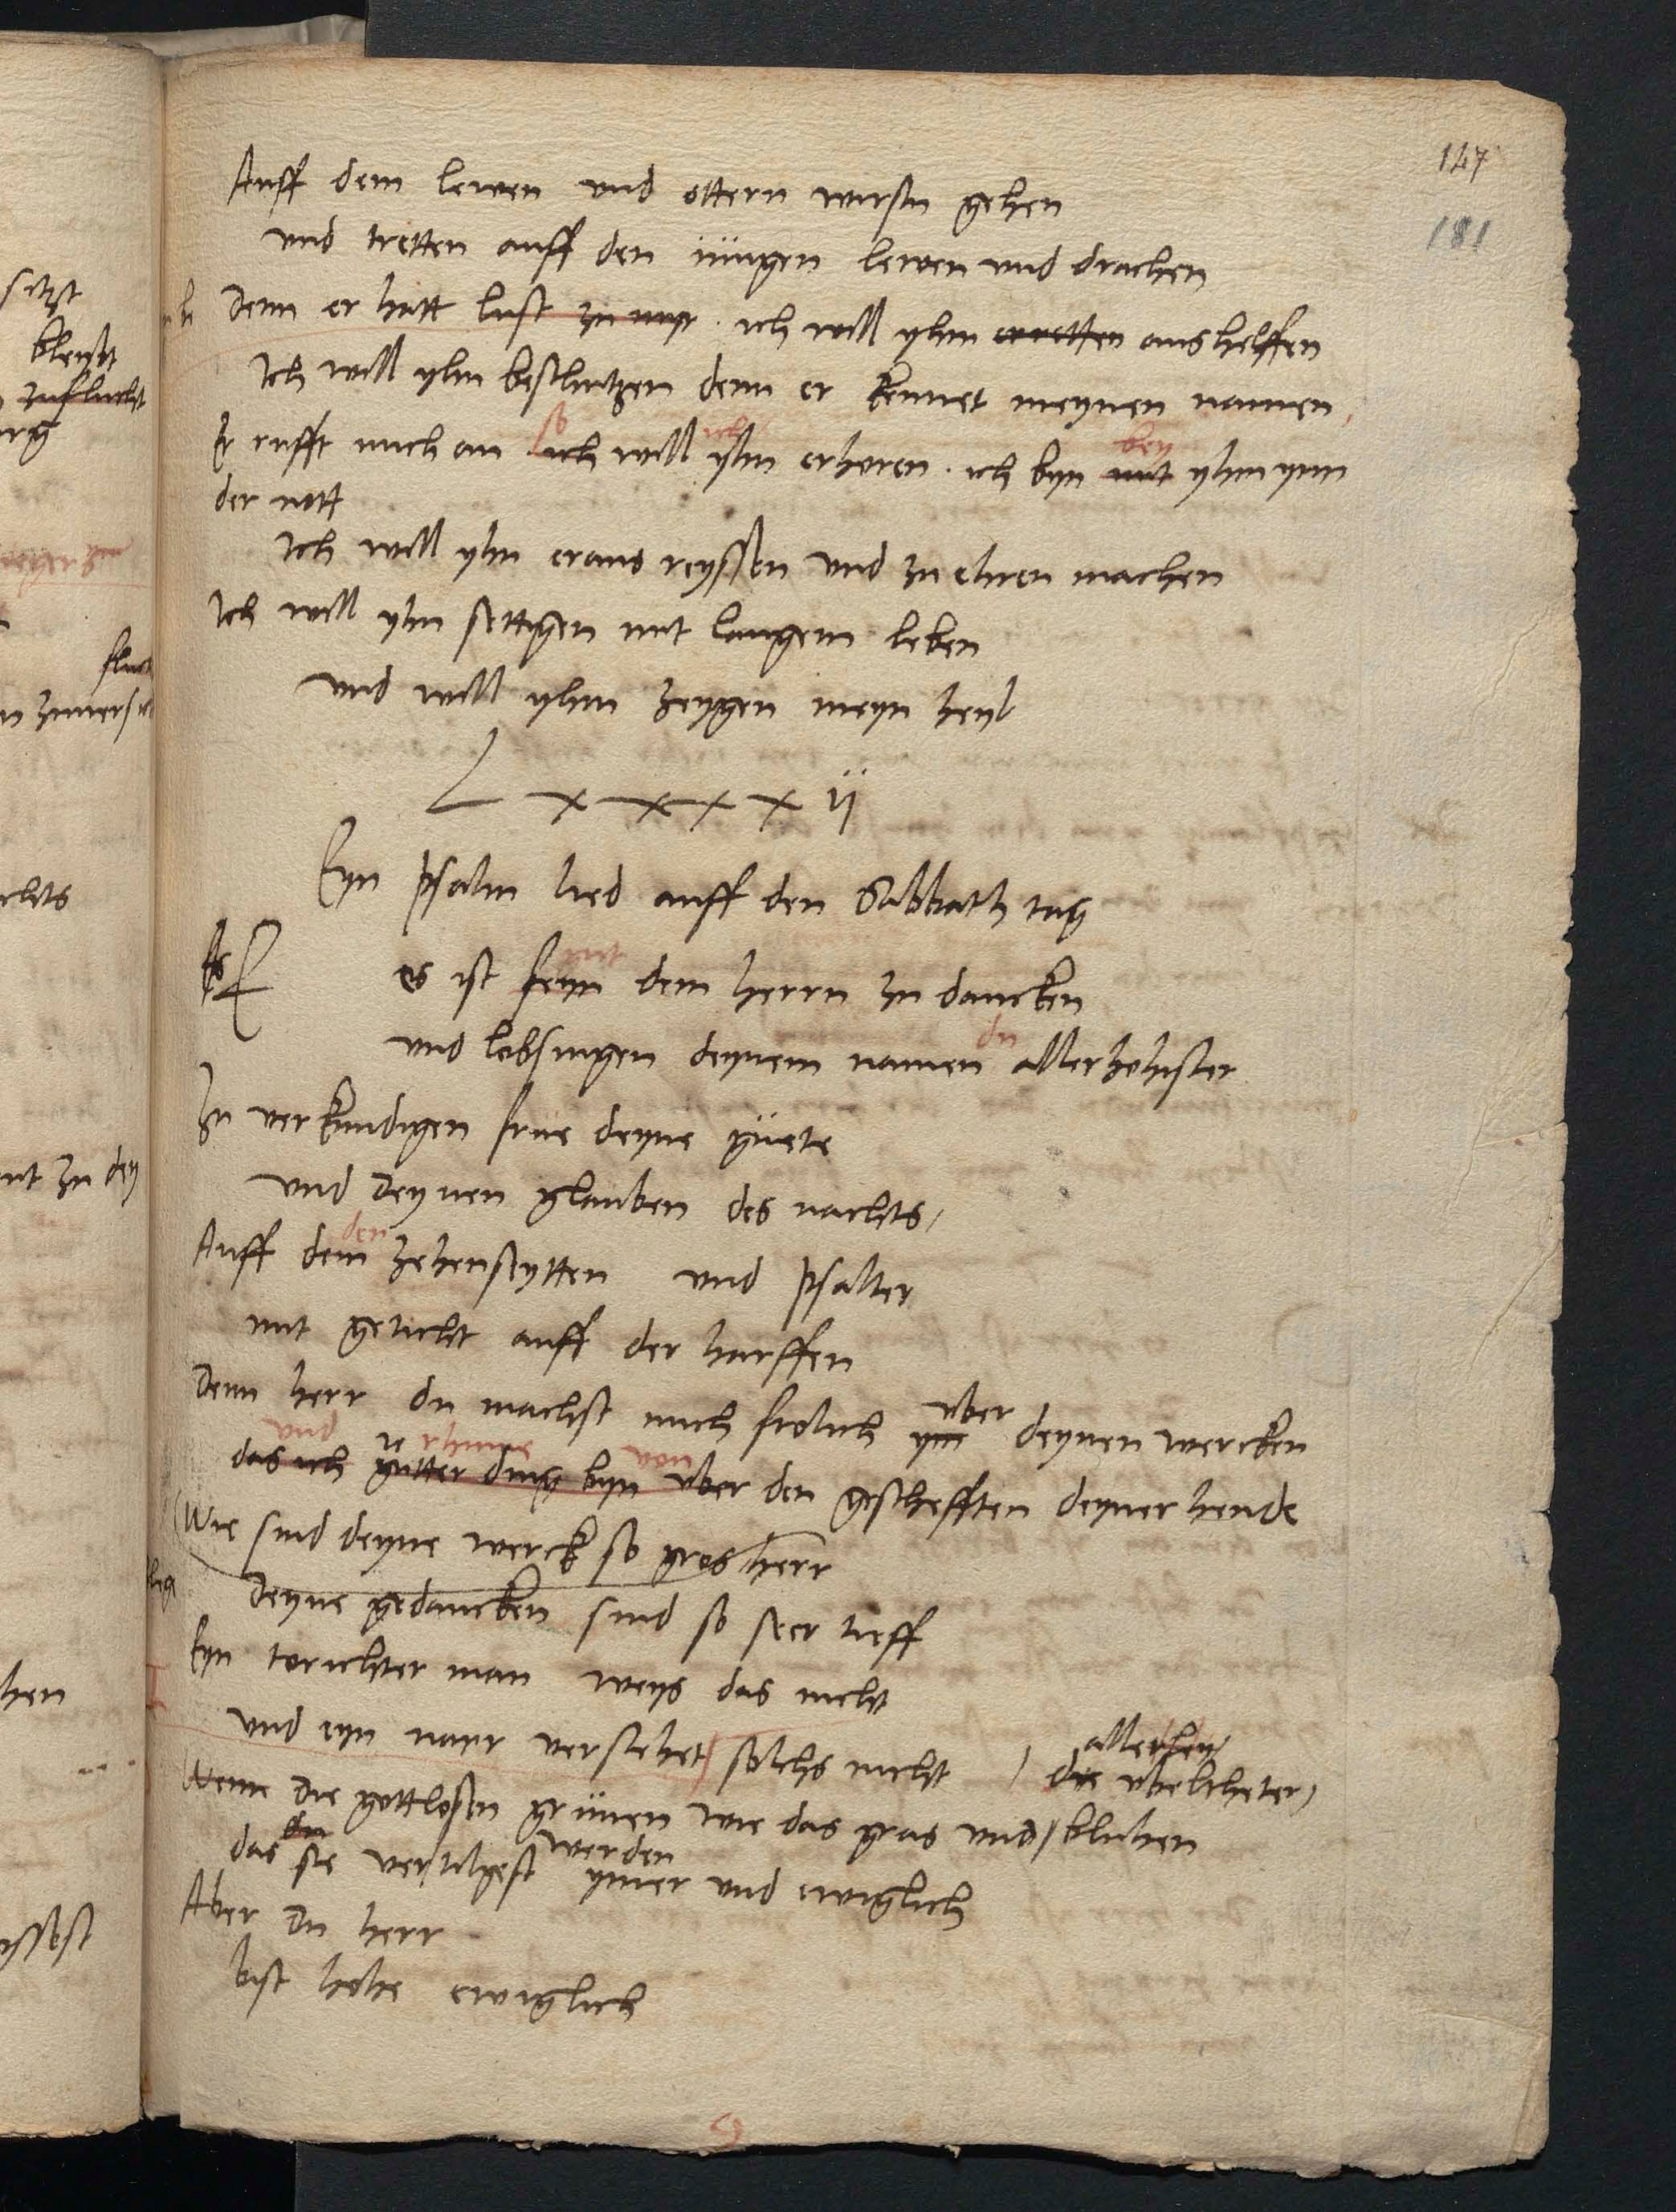 147
181
Auff dem lewen und ottern wirstu gehen
und tretten auff den jungen lewen und drachen
Denn er hatt lust zu myr . ich will yhm erretten aushelffen
Ich will yhn beschutzen denn er kennet meynen namen,
Er rufft mich an so ich will ich yhn erhoren . ich byn mit bey yhm ynn
der nott
Ich will yhn eraus reyssen und zu ehren machen
Ich will yhn settigen mit langem leben
und will yhm zeygen meyn heyl
Lxxxxii
Eyn Psalm lied auff den Sabbath tag
Es ist feyn dem herrn zu dancken
und lobsingen deynem namen du allerhohister
Zu verkundigen frue deyne guete
und deynen glauben des nachts,
Auff dem den zehenseytten und psalter
mit geticht auff der harffen
Denn herr du machst mich frolich ynn uber deynen wercken
und rhume von
das ich gutter ding byn uber den geschefften deyner hende
Wie sind deyne werck so gros herr
Deyne gedancken sind so seer tieff
Eyn torichter man weys das nicht
und eyn narr verstehet solchs nicht
allerley
die ubeltheter
Wenn die gottlosen grunen wie das gras und blühen
das du sie vertilgest werden ymer und ewiglich
Aber du herr
bist hohe ewiglich